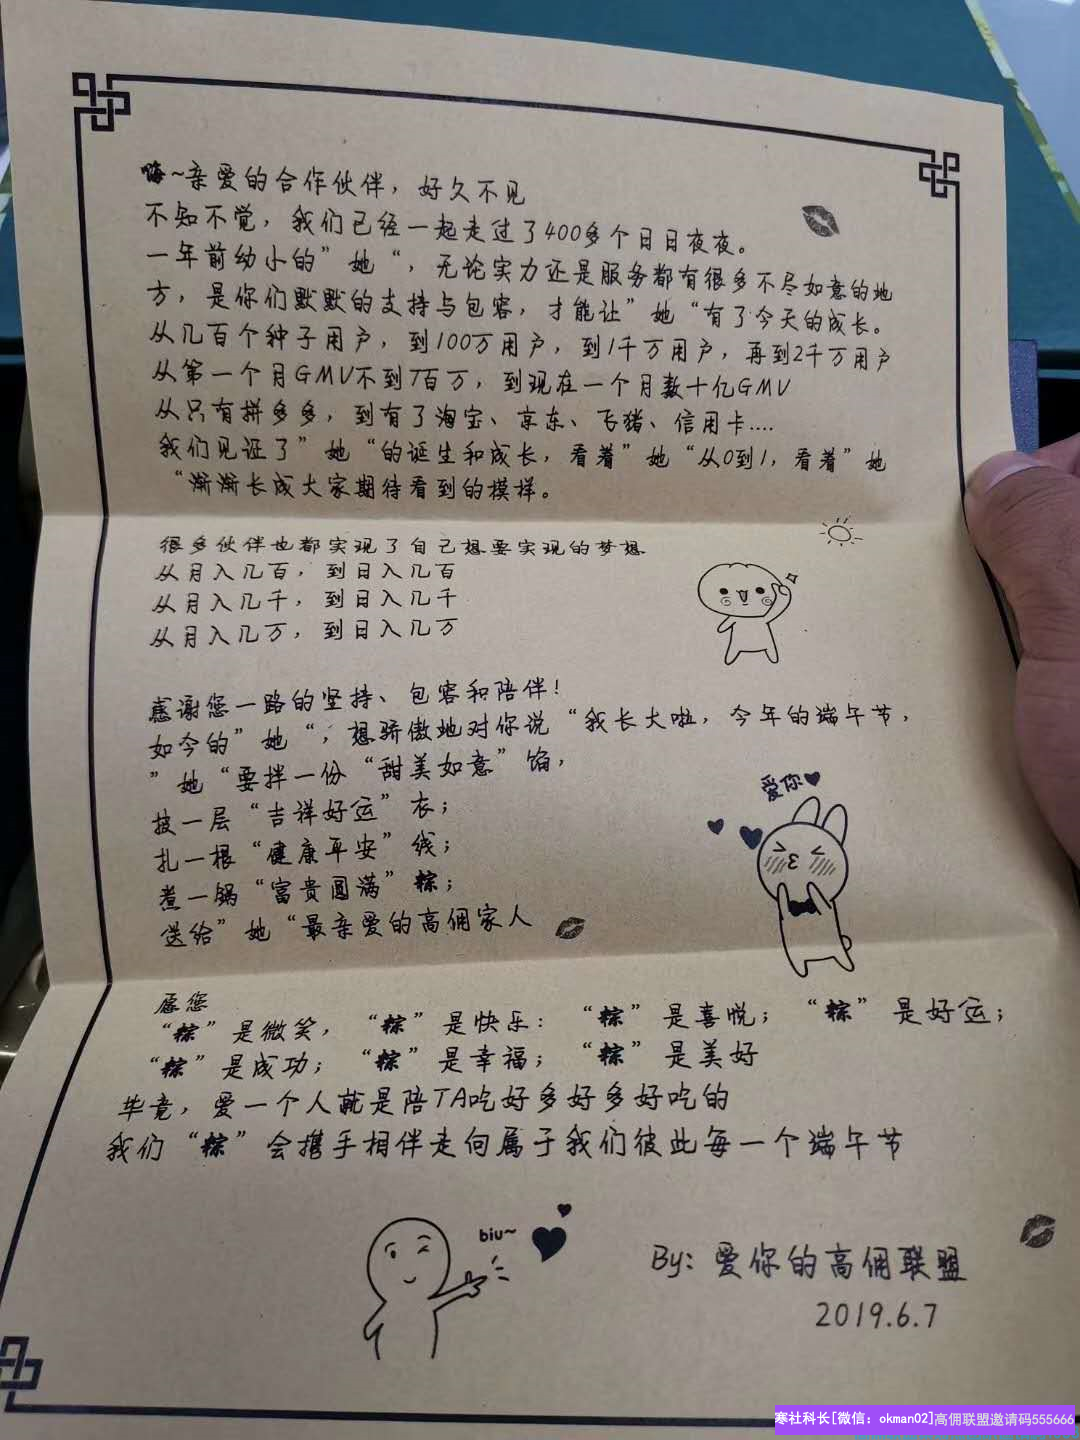 嗨~亲爱的合作伙伴，好久不见
不知不觉，我们已经一起走过了400多个日日夜夜。
一年前幼小的”她“，无论实力还是服务都有很多不尽如意的地
方，是你们默默的支持与包容，才能让”她“有了今天的成长。
从几百个种子用户，到100万用户，到1千万用户，再到2千万用户
从第一个月GMV不到7百万，到现在一个月数十亿GMV
从只有拼多多，到有了淘宝、京东、飞猪、信用卡....
我们见证了”她“的诞生和成长，看着”她“从0到1，看着”她
“渐渐长成大家期待看到的模样。
很多伙伴也都实现了自己想要实现的梦想
从月入几百，到日入几百
从月入几千，到日入几千
从月入几万，到日入几万
感谢您一路的坚持、包容和陪伴！
如今的”她“，想骄傲地对你说“我长大啦，今年的端午节，
”她“要拌一份“甜美如意”馅，
披一层“吉祥好运”衣；
扎一根“健康平安”线；
煮一锅“富贵圆满”粽；
送给”她“最亲爱的高佣家人
爱你
愿您
“粽”是微笑，“粽”是快乐：“粽”是喜悦；“粽”是好运；
“粽”是成功；“粽”是幸福；“粽”是美好
毕竟，爱一个人就是陪TA吃好多好多好吃的
我们“粽”会携手相伴走向属于我们彼此每一个端午节
biu~
By：爱你的高佣联盟
2019.6.7
寒社科长[微信：okman02]高佣联盟邀请码555666